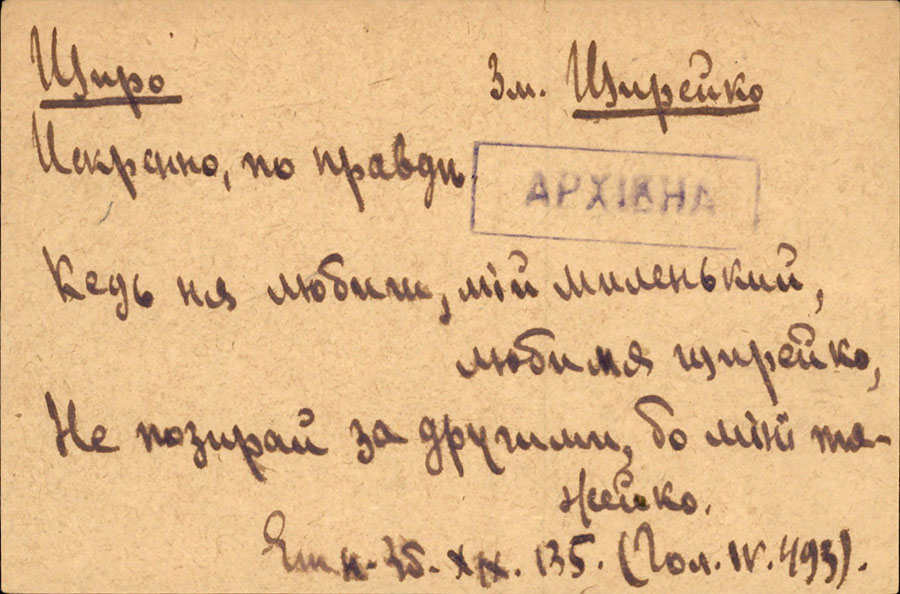 Щиро Зм. Щирейко
Искренно, по правди
АРХІВНА
Кедь ня любиш, мій миленький,
люби мя щирейко,
Не позирай за другими, бо міні тя-
жейко.
Етн. Зб. XIX. 135. (Гол. IV. 493).